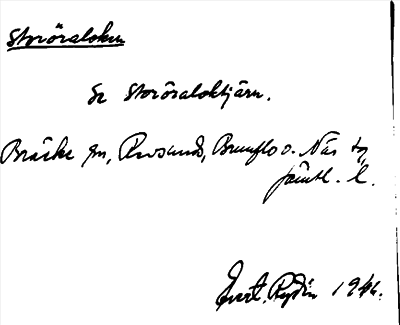 Storöraloken
Se Storöraloktjärn.
Bräcke sn, Revsunds, Brunflo o. Näs tg
Jämtl. l.
Evert. Rydin 1946.